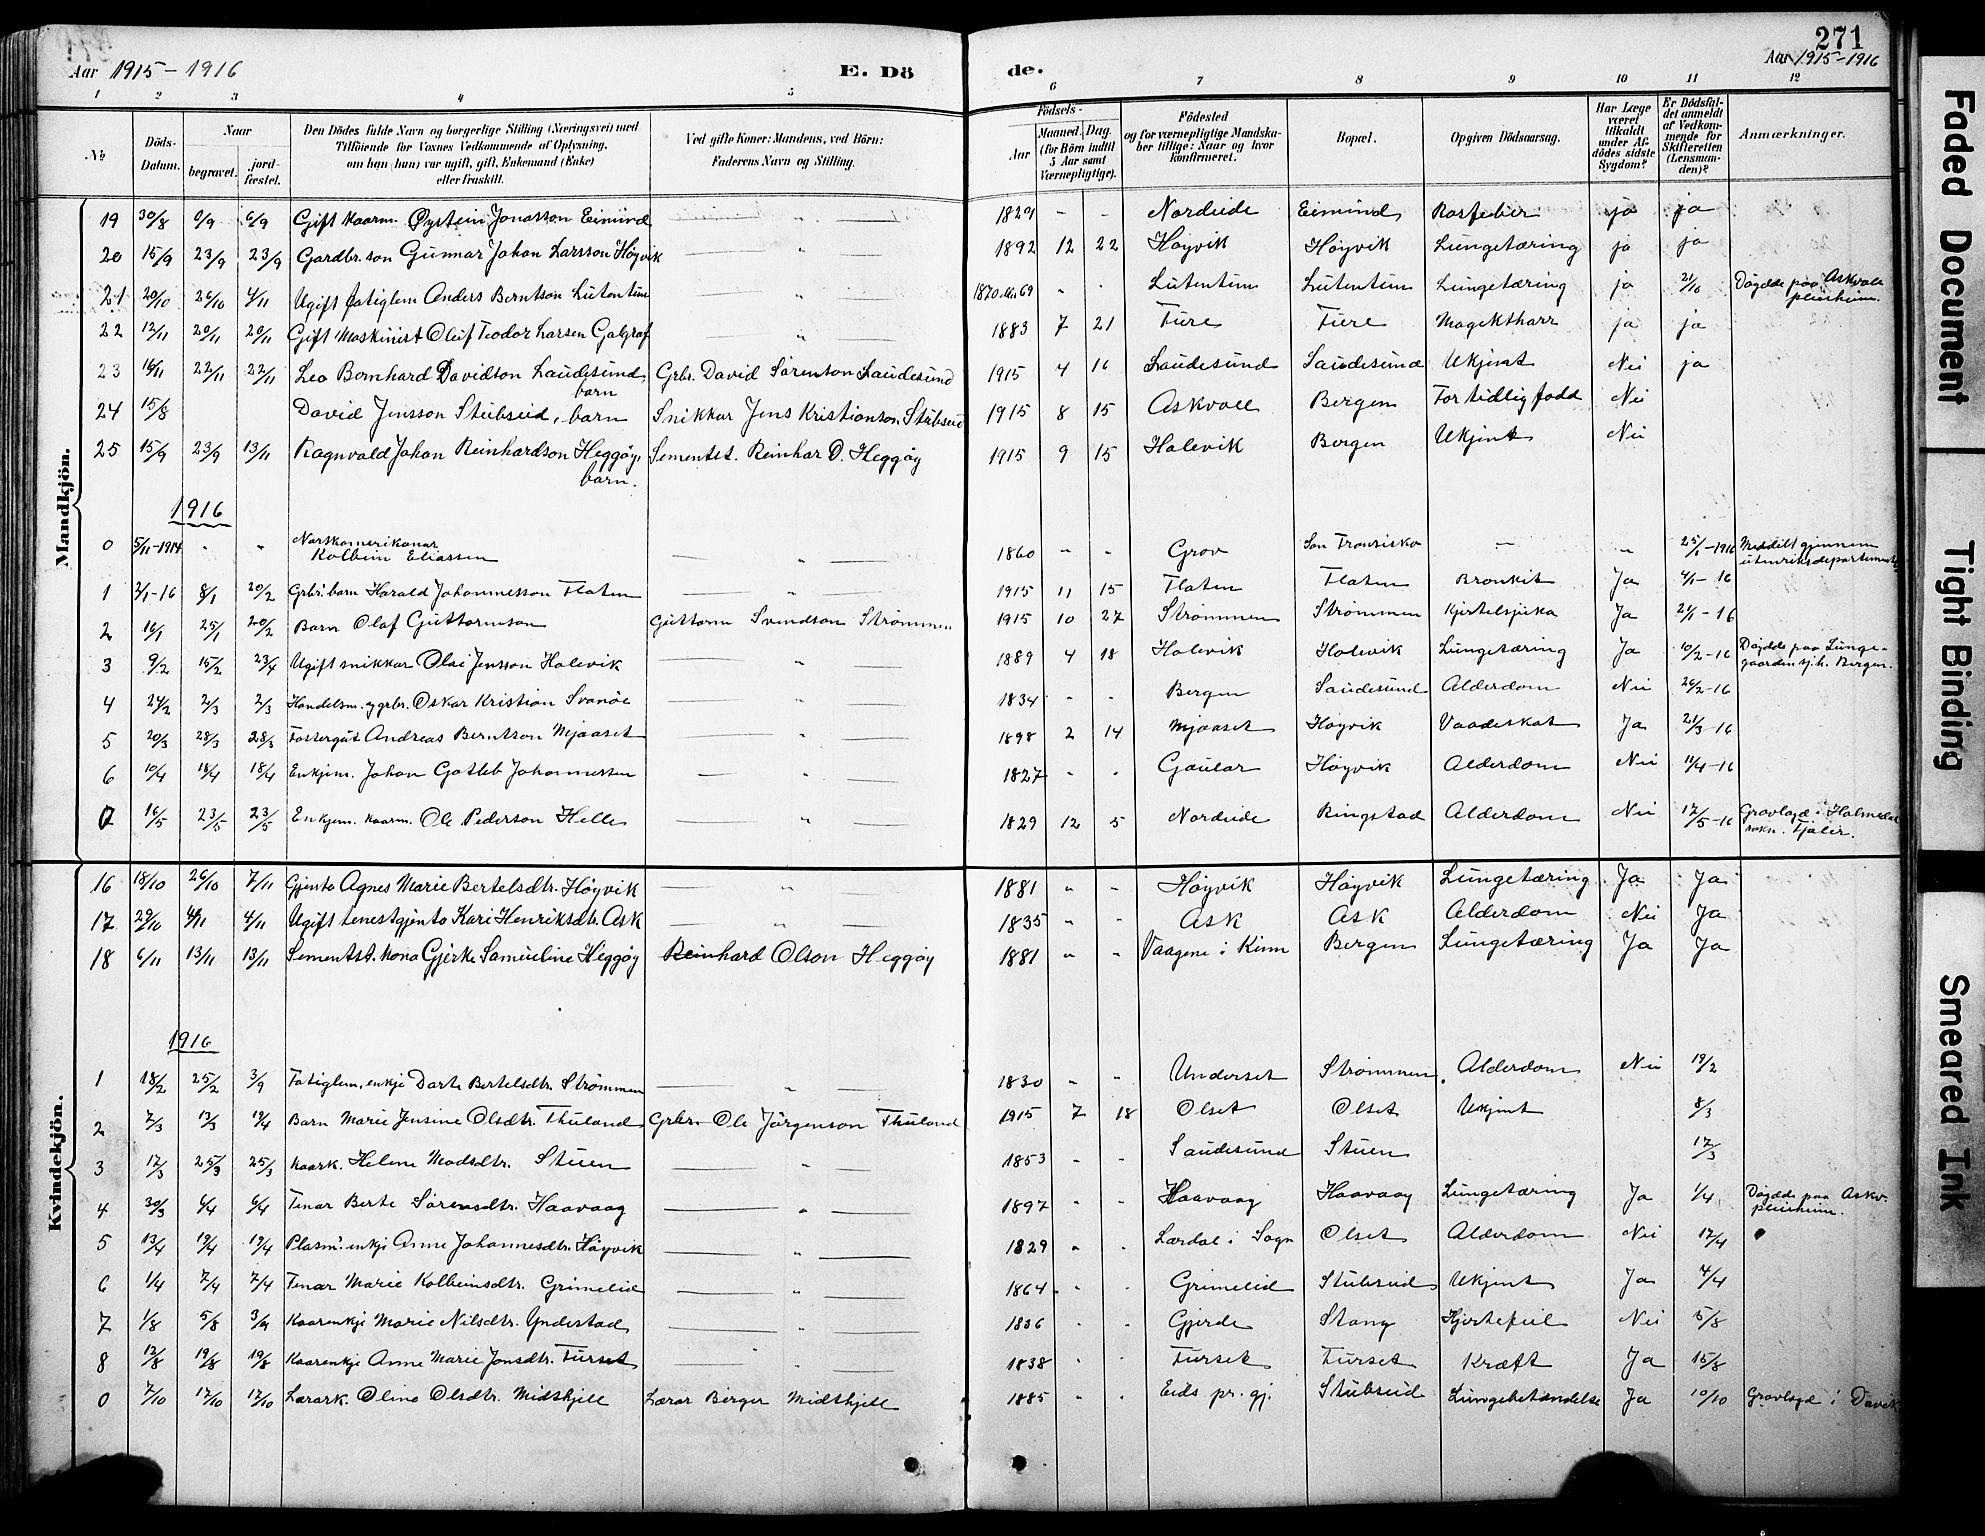 271
Aar 1915-1916
E. Dö
de.
Aar 1915-1916
1 2 3 4 5 6 7 8 9 10 11 12
No
Döds-Datum.
Naar
begravet.
jord-fæstet.
Den Dödes fulde Navn og borgerlige Stilling (Næringsvei) med
Tilföiende for Voxnes Vedkommende af Oplysning,
om han (hun) var ugift, gift, Enkemand (Enke)
eller fraskilt.
Ved gifte Koner: Mandens, ved Börn:
Faderens Navn og Stilling.
Födsels-
Aar
Maaned. Dag.
(for Börn indtil
5 Aar samt
Værnepligtige).
Födested
og for værnepligtige Mandska-
ber tillige: Naar og hvor
konfirmeret.
Bopæl.
Opgiven Dödsaarsag.
Har Læge
været
tilkaldt
under Af-
dödes sidste
Sygdom?
Er Dödsfal-
det anmeldt
af Vedkom-
mende for
Skifteretten
(Lensman-
den)?
Anmærkninger.
Mandkjön.
19 30/8 6/9 6/9 Gift kaarm. Øystein Jonasson Eimind " 1829 - - Nordeide Eimind Rosfeber ja ja
20 15/9 23/9 23/9 Gardbr.son Gunnar Johan Larsson Høyvik " 1892 12 22 Høyvik Høyvik Lungetæring ja ja
21 20/10 26/10 4/11 Ugift fatiglem Anders Berntson Lutentun " 1870 69 - - Lutentun Lutentun Lungetæring ja 21/10 Døydde paa Askvoll
pleieheim.
22 12/11 20/11 20/11 Gift Maskinist Oluf Teodor Larsen " 1883 7 21 Fure Fure ja ja
23 16/11 22/11 22/11 Leo Bernhard Davidson Laudesund, Grbr. David Sørenson Laudesund 1915 4 16 Laudesund Saudesund Ukjint Nei ja
barn
24 15/8 David Jensson Stubseid, barn Snikkar Jens Kristianson Stubseid 1915 8 15 Askvoll Bergen For tidlig fødd Nei
25 15/9 23/9 13/11 Ragnvald Johan Reinhardson Heggøy, Sementst. Reinhar D. Heggøy 1915 9 15 Holevik Bergen Ukjint Nei
barn.
1916
0 5/11-1914 " " Norskamerikanar
Kolbein Eliassen " 1860 - - Grov San Fransisko - " 25/1-1916 Meddelt gjennem
utenriksdepartementet
1 2/1-16 8/1 20/2 Grbr. barn Harald Johannesson Flaten " 1915 11 15 Flaten Flaten Bronkit Ja 4/1-16
2 16/1 25/1 20/2 Barn Olaf Guttormson Guttorm Svendson Strømmen 1915 10 27 Strømmen Strømmen Kjertelsjuka Ja 21/1-16
3 9/2 15/2 23/4 Ugift snikkar Olai Jensson Holevik " 1889 4 18 Holevik Holevik Lungetæring Ja 10/2-16 Døydde paa Lunge-
gaarden sjh. Bergen.
4 24/2 2/3 2/3 Handelsm. og grbr. Oskar Kristian Svanøe 1834 - - Bergen Saudesund Alderdom Nei 26/2-16
5 20/3 28/3 28/3 Fostergut Andreas Berntson Mjaaset " 1898 2 14 Mjaaset Høyvik Vaadeskot Ja 21/3-16
6 10/4 18/4 18/4 Enkjem. Johan Gotleb Johannessen " 1827 - - Gaular Høyvik Alderdom Nei 11/4-16
0 16/5 23/5 23/5 Enkjem. kaarm. Ole Pederson Helle " 1829 12 5 Nordeide Ringstad Alderdom Nei 17/5-16 Gravlagd i Holmedal
sokn. Fjaler.
Kvindekjön.
16 18/10 26/10 7/11 Gjenta Agnes Marie Bertelsdtr. Høyvik " 1881 " - Høyvik Høyvik Lungetæring Ja Ja
17 29/10 4/11 4/11 Ugift tenestgjenta Kari Henriksdtr. Ask " 1835 " - Ask Ask Alderdom Nei Ja
18 6/11 13/11 13/11 Sementst. kona Gjerke Samueline Heggøy Reinhard Olson Heggøy 1881 " - Vaagene i Kinn Bergen Lungetæring Ja Ja
1916
1 18/2 25/2 3/9 Fatiglem, enkje Dorte Bertelsdtr. Strømmen " 1830 " " Underset Strømmen, Alderdom Nei 19/2
2 7/3 13/3 19/4 Barn Marie Jensine Olsdtr. Thuland Grbr. Ole Jørgenson Thuland 1915 7 18 Olset Olset Ukjint 8/3
3 17/3 25/3 25/3 Kaark. Helene Madsdtr. Stuen " 1853 - - Saudesund Stuen 17/3
4 30/3 6/4 6/4 Tenar Berte Sørensdtr. Haavaag " 1897 - - Haavaag Haavaag Lungetæring Ja 1/4 Døydde paa Askv.
pleieheim.
5 13/4 19/4 19/4 Plasm. enkje Anne Johannesdtr. Høyvik " 1829 " - Lærdal i Sogn Olset Alderdom Nei 17/4
6 1/4 7/4 7/4 Tenar Marie Kolbeinsdtr. Grimelid " 1864 - - Grimelid Stubseid Ukjint Ja 4/4
7 1/8 5/8 3/9 Kaarenkje Marie Nilsdtr. Yndestad " 1836 - - Gjerde Stang Hjertefeil Nei 5/8
8 12/8 19/8 19/8 Kaarenkje Anne Marie Jonsdtr. Furset " 1838 - - Furset Furset Kræft Ja 15/8
0 7/10 17/10 17/10 Lærark. Oline Olsdtr. Midthjell Lærar Berger Midthjell 1885 - - Eids pr.gj. Stubseid Lungebetændelse Ja 10/10 Gravlagd i Davik
Faded Document
Tight Binding
Smeared Ink